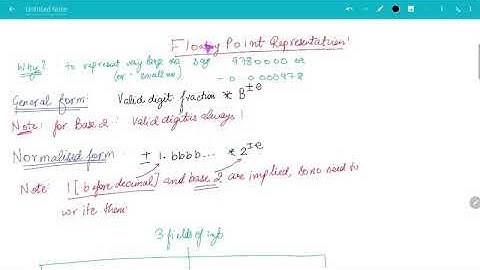 Untitled Note
Floating Point Representation:
Why? to represent very large no. say 9780000 or
(or - small no) - 0.0000978
General form: Valid digit fraction * B±e
Note: for Base 2: Valid digit is always 1
Normalised form: ± 1.bbbb... * 2±e
Note: 1 [before decimal] and base 2 are implied, so no need to
write them.
3 fields of info